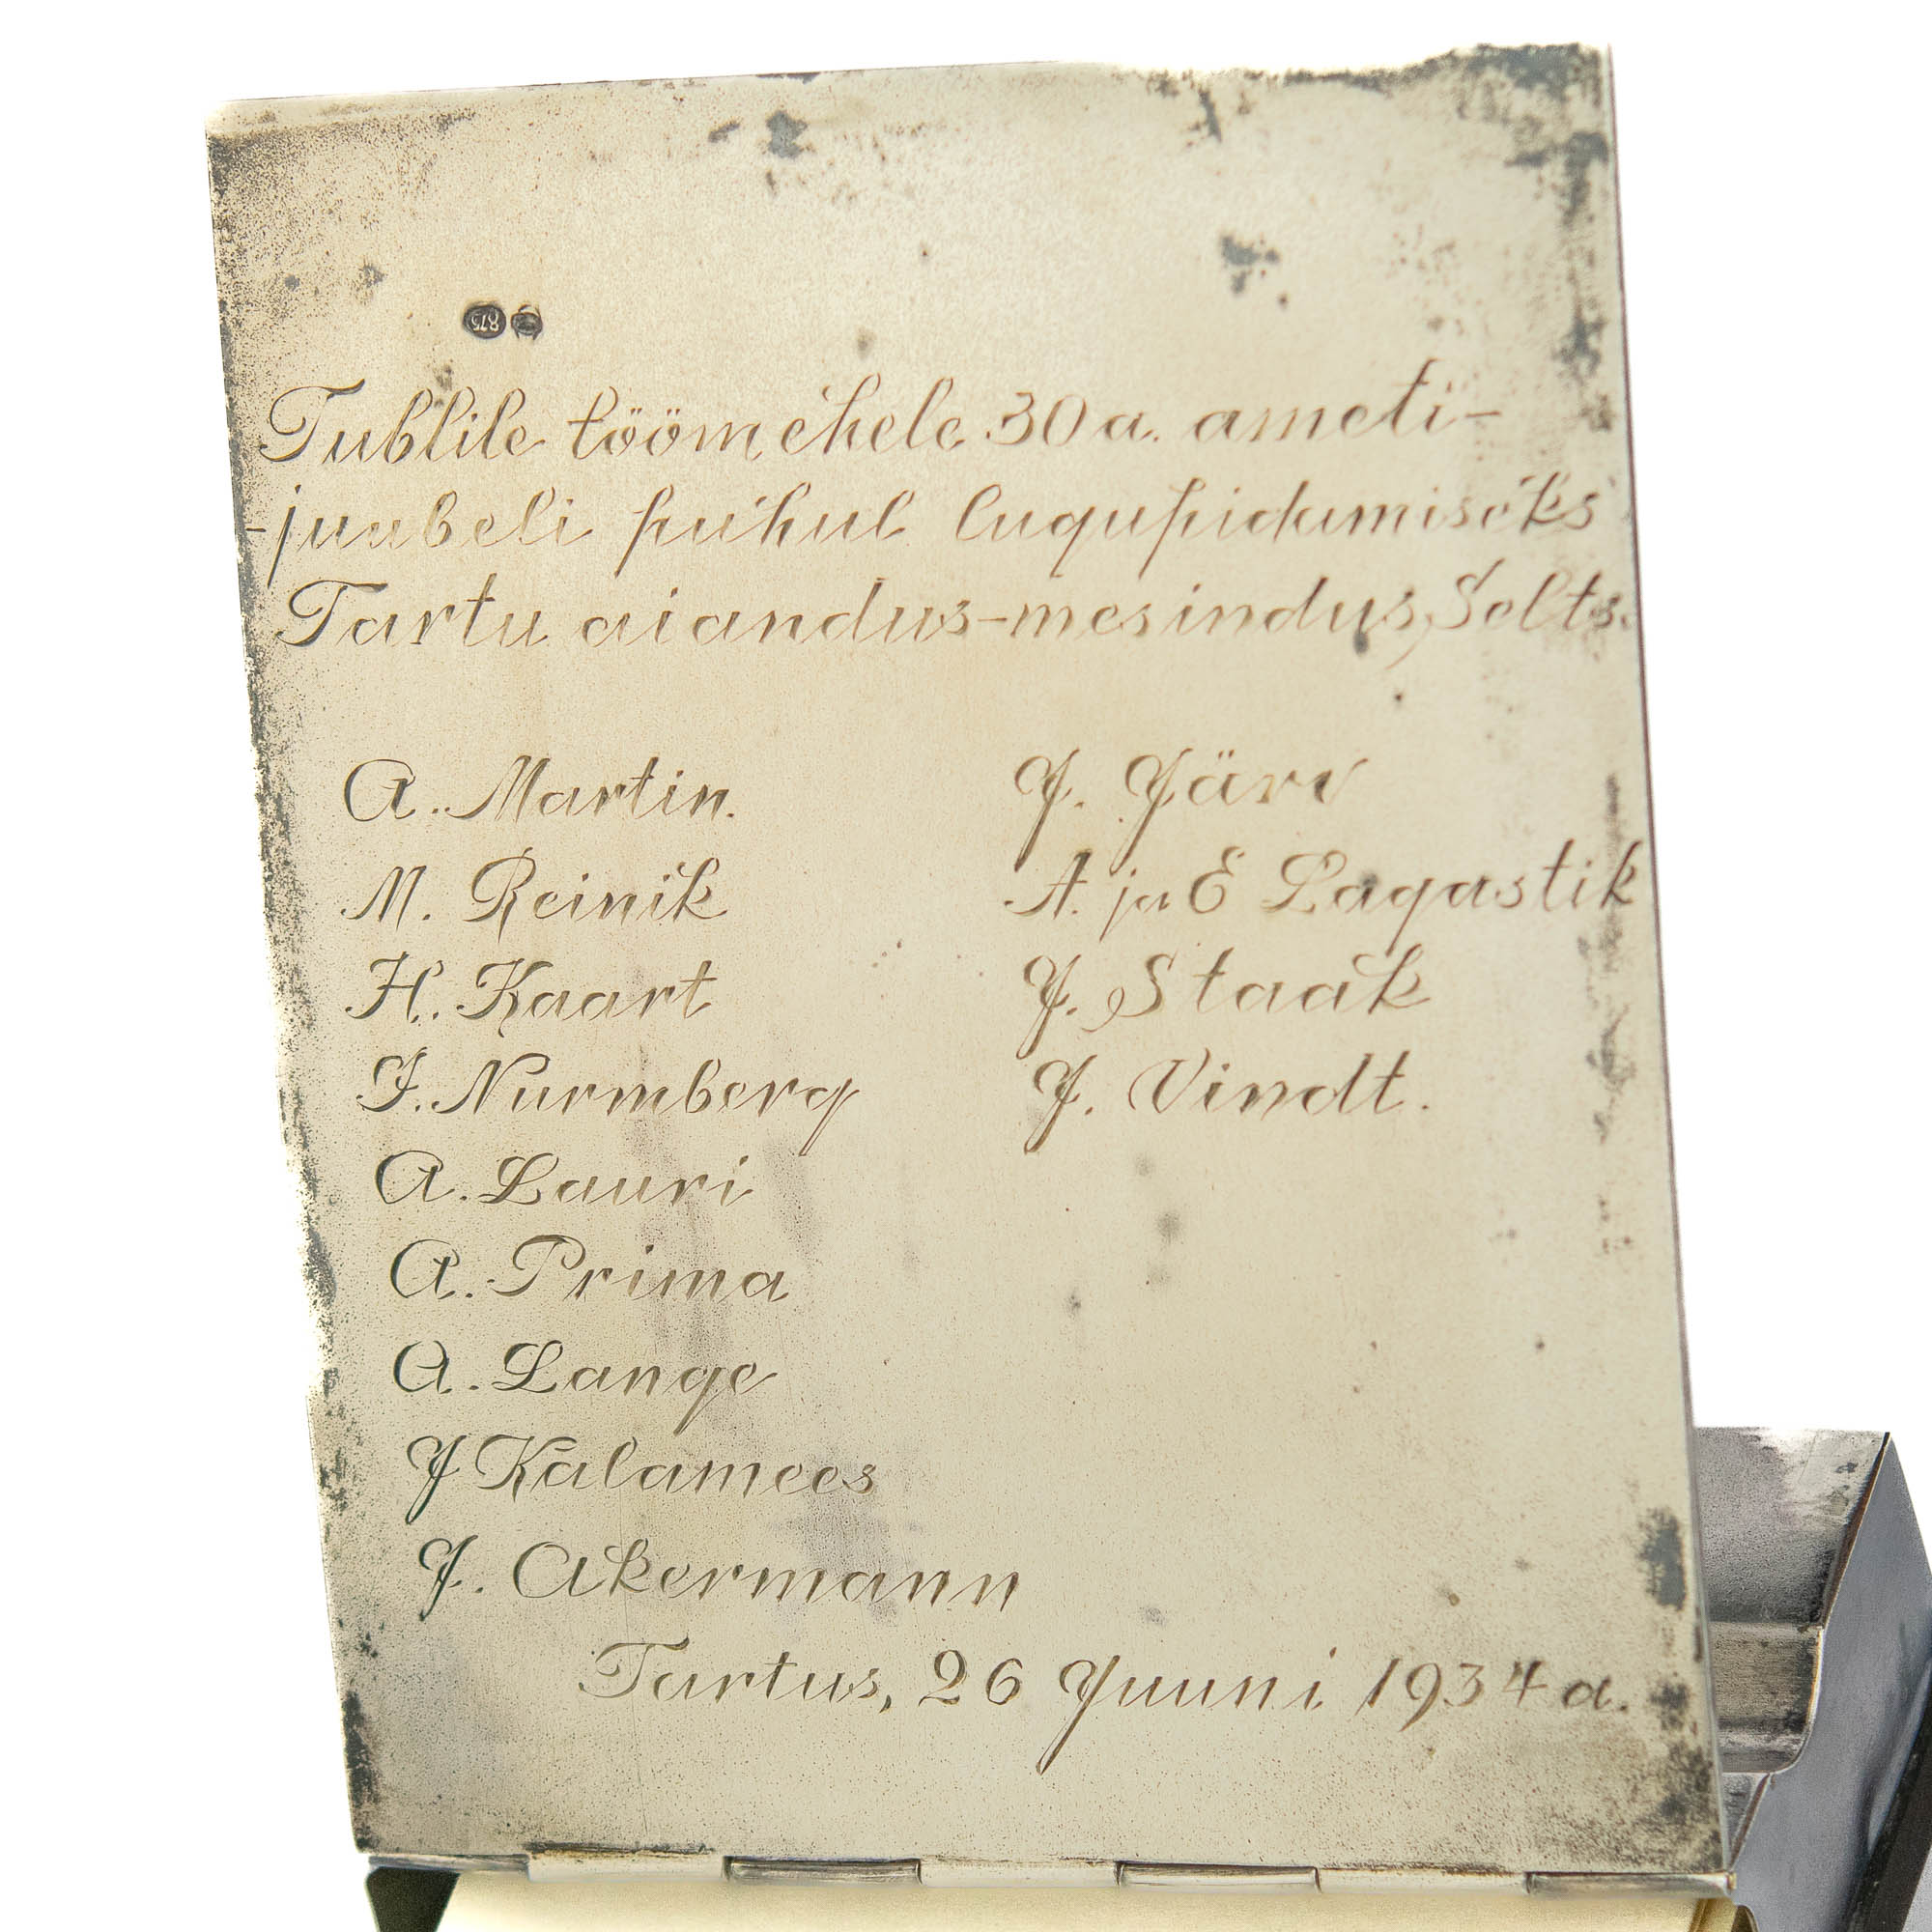 875
Tublile töömehele 30 a. ameti-
-juubeli puhul lugupidamiseks
Tartu aiandus-mesindus, Selts.
A. Martin.
M. Reinik
H. Kaart
J. Nurmberg
A. Lauri
A. Prima
A. Lange
J Kalamees
J. Akermann
J. Järv
A. ja E Lagastik
J. Staak
J. Vindt.
Tartus, 26 Juuni 1934 a.